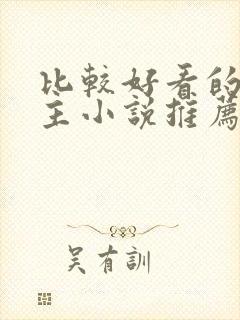 比較好看的
主小說推薦
吳有訓